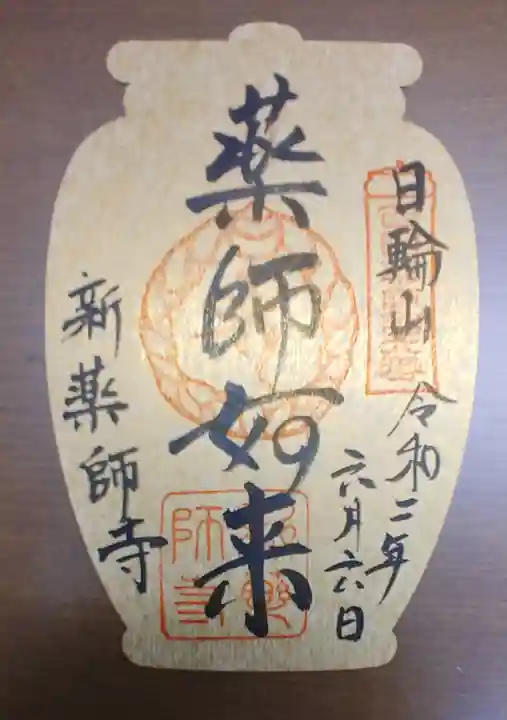 日輪山
令和二年
六月六日
薬師如来
新薬師寺